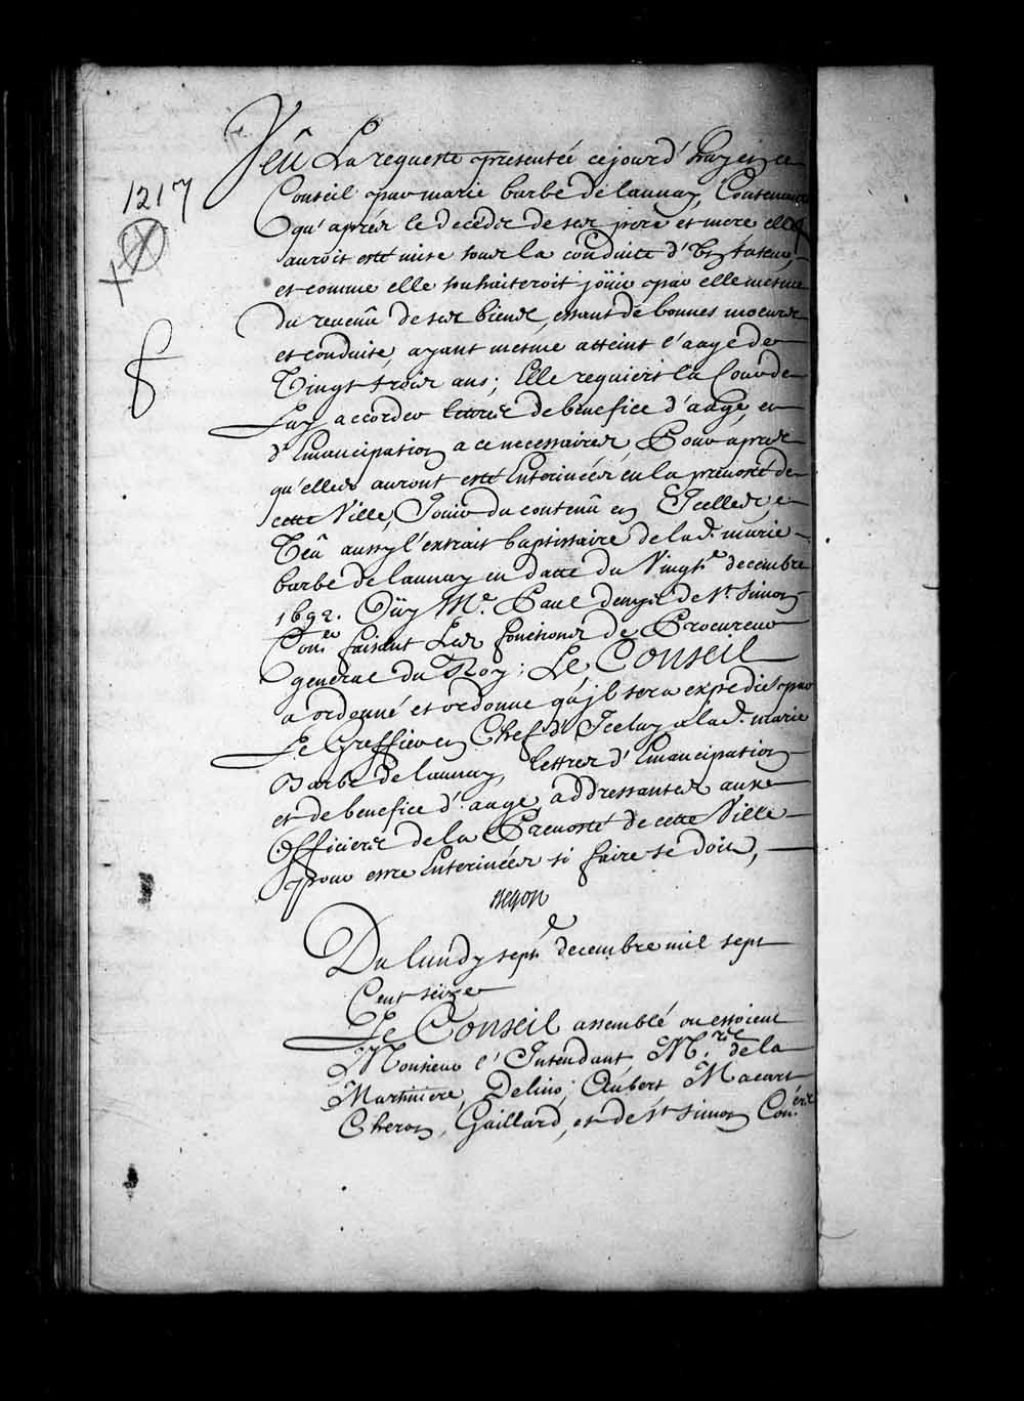 1217
Veû La requeste presentée cejourd'huy en ce
Conseil par marie barbe delaunay, Contenant
qu'aprés le decéds de ses pere et mere elle
auroit esté mise sous la conduite d'Un tuteur,
et comme elle souhaiteroit joüir par elle mesme
du revenû de ses biens, estant de bonnes moeurs
et conduite, ayant mesme atteint l'aage de
Vingt trois ans; Elle requiert la Cour de
Luy accorder lettres de benefice d'aage, et
d'Emancipation a ce necessaires, Pour apres
qu'elles auront esté Enterinées en la prevosté de
cette Ville, Jouir du contenû en Jcelles,
Veû aussy l'extrait baptistaire de lad. marie
barbe delaunay en datte du Vingt.e decembre
1692. Oüy M.e Paul denys de St. Simon
Con.er faisant Les fonctions de Procureur
general du Roy; Le Conseil
a ordonné et ordonne qu'jl sera expedié par
Le Greffier en Chef d'Jceluy a lad. marie
Barbe delaunay, lettres d'Emancipation
et de benefice d'aage, addressantes aux
Officiers de la Prevosté de cette Ville
pour estre Enterinées si faire se doit,
Begon
Du lundy sept.e decembre mil sept
Cent seize
Le Conseil assemblé ou estoient
Monsieur l'Intendant M.rs de la
Martiniere, Delino, Aubert Macart
Cheron, Gaillard, et de St Simon Con.ers